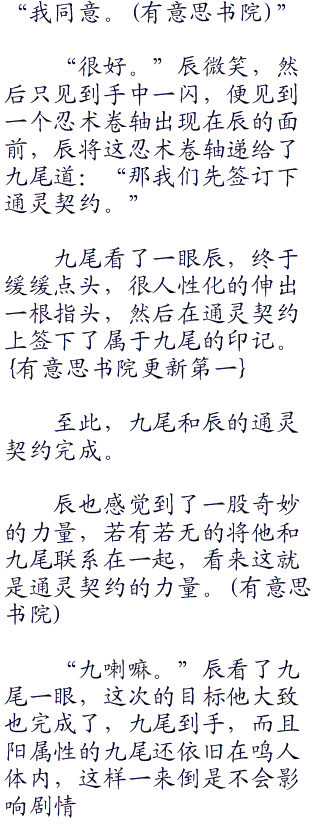 “我同意。(有意思书院)”
“很好。”辰微笑，然
后只见到手中一闪，便见到
一个忍术卷轴出现在辰的面
前，辰将这忍术卷轴递给了
九尾道：“那我们先签订下
通灵契约。”
九尾看了一眼辰，终于
缓缓点头，很人性化的伸出
一根指头，然后在通灵契约
上签下了属于九尾的印记。
{有意思书院更新第一}
至此，九尾和辰的通灵
契约完成。
辰也感觉到了一股奇妙
的力量，若有若无的将他和
九尾联系在一起，看来这就
是通灵契约的力量。(有意思
书院)
“九喇嘛。”辰看了九
尾一眼，这次的目标他大致
也完成了，九尾到手，而且
阳属性的九尾还依旧在鸣人
体内，这样一来倒是不会影
响剧情